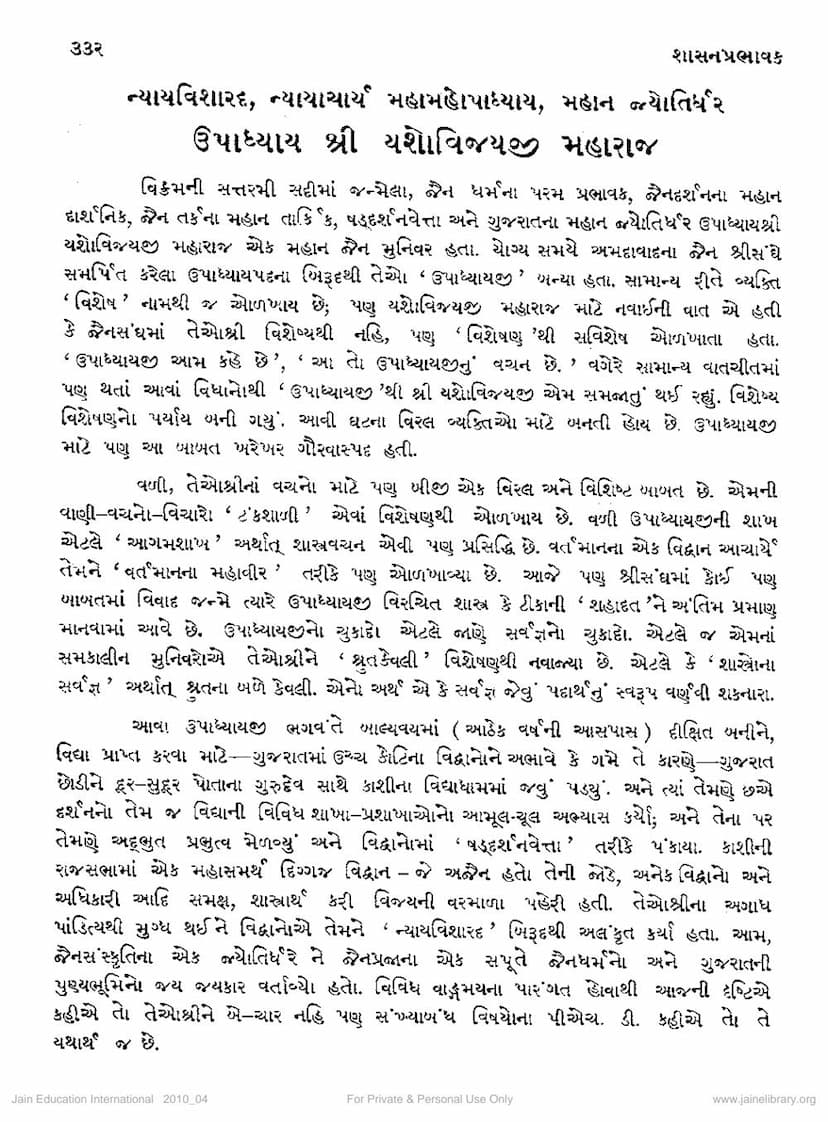 ૩૩૨
શાસનપ્રભાવક
ન્યાયવિશારદ, ન્યાયાચાર્ય મહામહોપાધ્યાય, મહાન જ્યોતિર્ધર
ઉપાધ્યાય શ્રી યશોવિજયજી મહારાજ
વિક્રમની સત્તરમી સદીમાં જન્મેલા, જૈન ધર્મના પરમ પ્રભાવક, જૈનદર્શનના મહાન
દાર્શનિક, જૈન તર્કના મહાન તાર્કિક, ષડ્દર્શનવેત્તા અને ગુજરાતના મહાન જ્યોતિર્ધર ઉપાધ્યાયશ્રી
યશોવિજયજી મહારાજ એક મહાન જૈન મુનિવર હતા. યોગ્ય સમયે અમદાવાદના જૈન શ્રીસંઘે
સમર્પિત કરેલા ઉપાધ્યાયપદના બિરૂદથી તેઓ ‘ ઉપાધ્યાયજી ’ બન્યા હતા. સામાન્ય રીતે વ્યક્તિ
‘ વિશેષ ’ નામથી જ ઓળખાય છે; પણ યશોવિજયજી મહારાજ માટે નવાઈની વાત એ હતી
કે જૈનસંઘમાં તેઓશ્રી વિશેષ્યથી નહિ, પણ ‘ વિશેષણ ’થી સવિશેષ ઓળખાતા હતા.
‘ ઉપાધ્યાયજી આમ કહે છે ’, ‘ આ તો ઉપાધ્યાયજીનું વચન છે. ’ વગેરે સામાન્ય વાતચીતમાં
પણ થતાં આવાં વિધાનોથી ‘ ઉપાધ્યાયજી ’થી શ્રી યશોવિજયજી એમ સમજાતું થઈ રહ્યું. વિશેષ્ય
વિશેષણનો પર્યાય બની ગયું. આવી ઘટના વિરલ વ્યક્તિઓ માટે બનતી હોય છે. ઉપાધ્યાયજી
માટે પણ આ બાબત ખરેખર ગૌરવાસ્પદ હતી.
વળી, તેઓશ્રીનાં વચનો માટે પણ બીજી એક વિરલ અને વિશિષ્ટ બાબત છે. એમની
વાણી–વચનો–વિચારો ‘ ટંકશાળી ’ એવાં વિશેષણથી ઓળખાય છે. વળી ઉપાધ્યાયજીની શાખ
એટલે ‘ આગમશાખ ’ અર્થાત્ શાસ્ત્રવચન એવી પણ પ્રસિદ્ધિ છે. વર્તમાનના એક વિદ્વાન આચાર્યે
તેમને ‘ વર્તમાનના મહાવીર ’ તરીકે પણ ઓળખાવ્યા છે. આજે પણ શ્રીસંઘમાં કોઈ પણ
બાબતમાં વિવાદ જન્મે ત્યારે ઉપાધ્યાયજી વિરચિત શાસ્ત્ર કે ટીકાની ‘શહાદત’ને અંતિમ પ્રમાણ
માનવામાં આવે છે. ઉપાધ્યાયજીનો ચુકાદો એટલે જાણે સર્વજ્ઞનો ચુકાદો. એટલે જ એમનાં
સમકાલીન મુનિવરોએ તેઓશ્રીને ‘ શ્રુતકેવલી ’ વિશેષણથી નવાજ્યા છે. એટલે કે ‘શાસ્ત્રોના
સર્વજ્ઞ’ અર્થાત્ શ્રુતના બળે કેવલી. એનો અર્થ એ કે સર્વજ્ઞ જેવું પદાર્થનું સ્વરૂપ વર્ણવી શકનારા.
આવા ઉપાધ્યાયજી ભગવંતે બાલ્યવયમાં ( આઠેક વર્ષની આસપાસ ) દીક્ષિત બનીને,
વિદ્યા પ્રાપ્ત કરવા માટે—ગુજરાતમાં ઉચ્ચ કોટિના વિદ્વાનોને અભાવે કે ગમે તે કારણે—ગુજરાત
છોડીને દૂર–સુદૂર પોતાના ગુરુદેવ સાથે કાશીના વિદ્યાધામમાં જવું પડ્યું. અને ત્યાં તેમણે છએ
દર્શનનો તેમ જ વિદ્યાની વિવિધ શાખા–પ્રશાખાઓનો આમૂલ–ચૂલ અભ્યાસ કર્યો; અને તેના પર
તેમણે અદ્ભુત પ્રભુત્વ મેળવ્યું અને વિદ્વાનોમાં ‘ ષડ્દર્શનવેત્તા ’ તરીકે પંકાયા. કાશીની
રાજસભામાં એક મહાસમર્થ દિગ્ગજ વિદ્વાન – જે અજૈન હતો તેની જોડે, અનેક વિદ્વાનો અને
અધિકારી આદિ સમક્ષ, શાસ્ત્રાર્થ કરી વિજયની વરમાળા પહેરી હતી. તેઓશ્રીના અગાધ
પાંડિત્યથી મુગ્ધ થઈને વિદ્વાનોએ તેમને ‘ ન્યાયવિશારદ ’ બિરૂદથી અલંકૃત કર્યા હતા. આમ,
જૈનસંસ્કૃતિના એક જ્યોતિર્ધરે ને જૈનપ્રજાના એક સપૂતે જૈનધર્મનો અને ગુજરાતની
પુણ્યભૂમિનો જય જયકાર વર્તાવ્યો હતો. વિવિધ વાઙ્મયના પારંગત હોવાથી આજની દૃષ્ટિએ
કહીએ તો તેઓશ્રીને બે–ચાર નહિ પણ સંખ્યાબંધ વિષયોના પીએચ. ડી. કહીએ તો તે
યથાર્થ જ છે.
Jain Education International 2010_04
For Private & Personal Use Only
www.jainelibrary.org